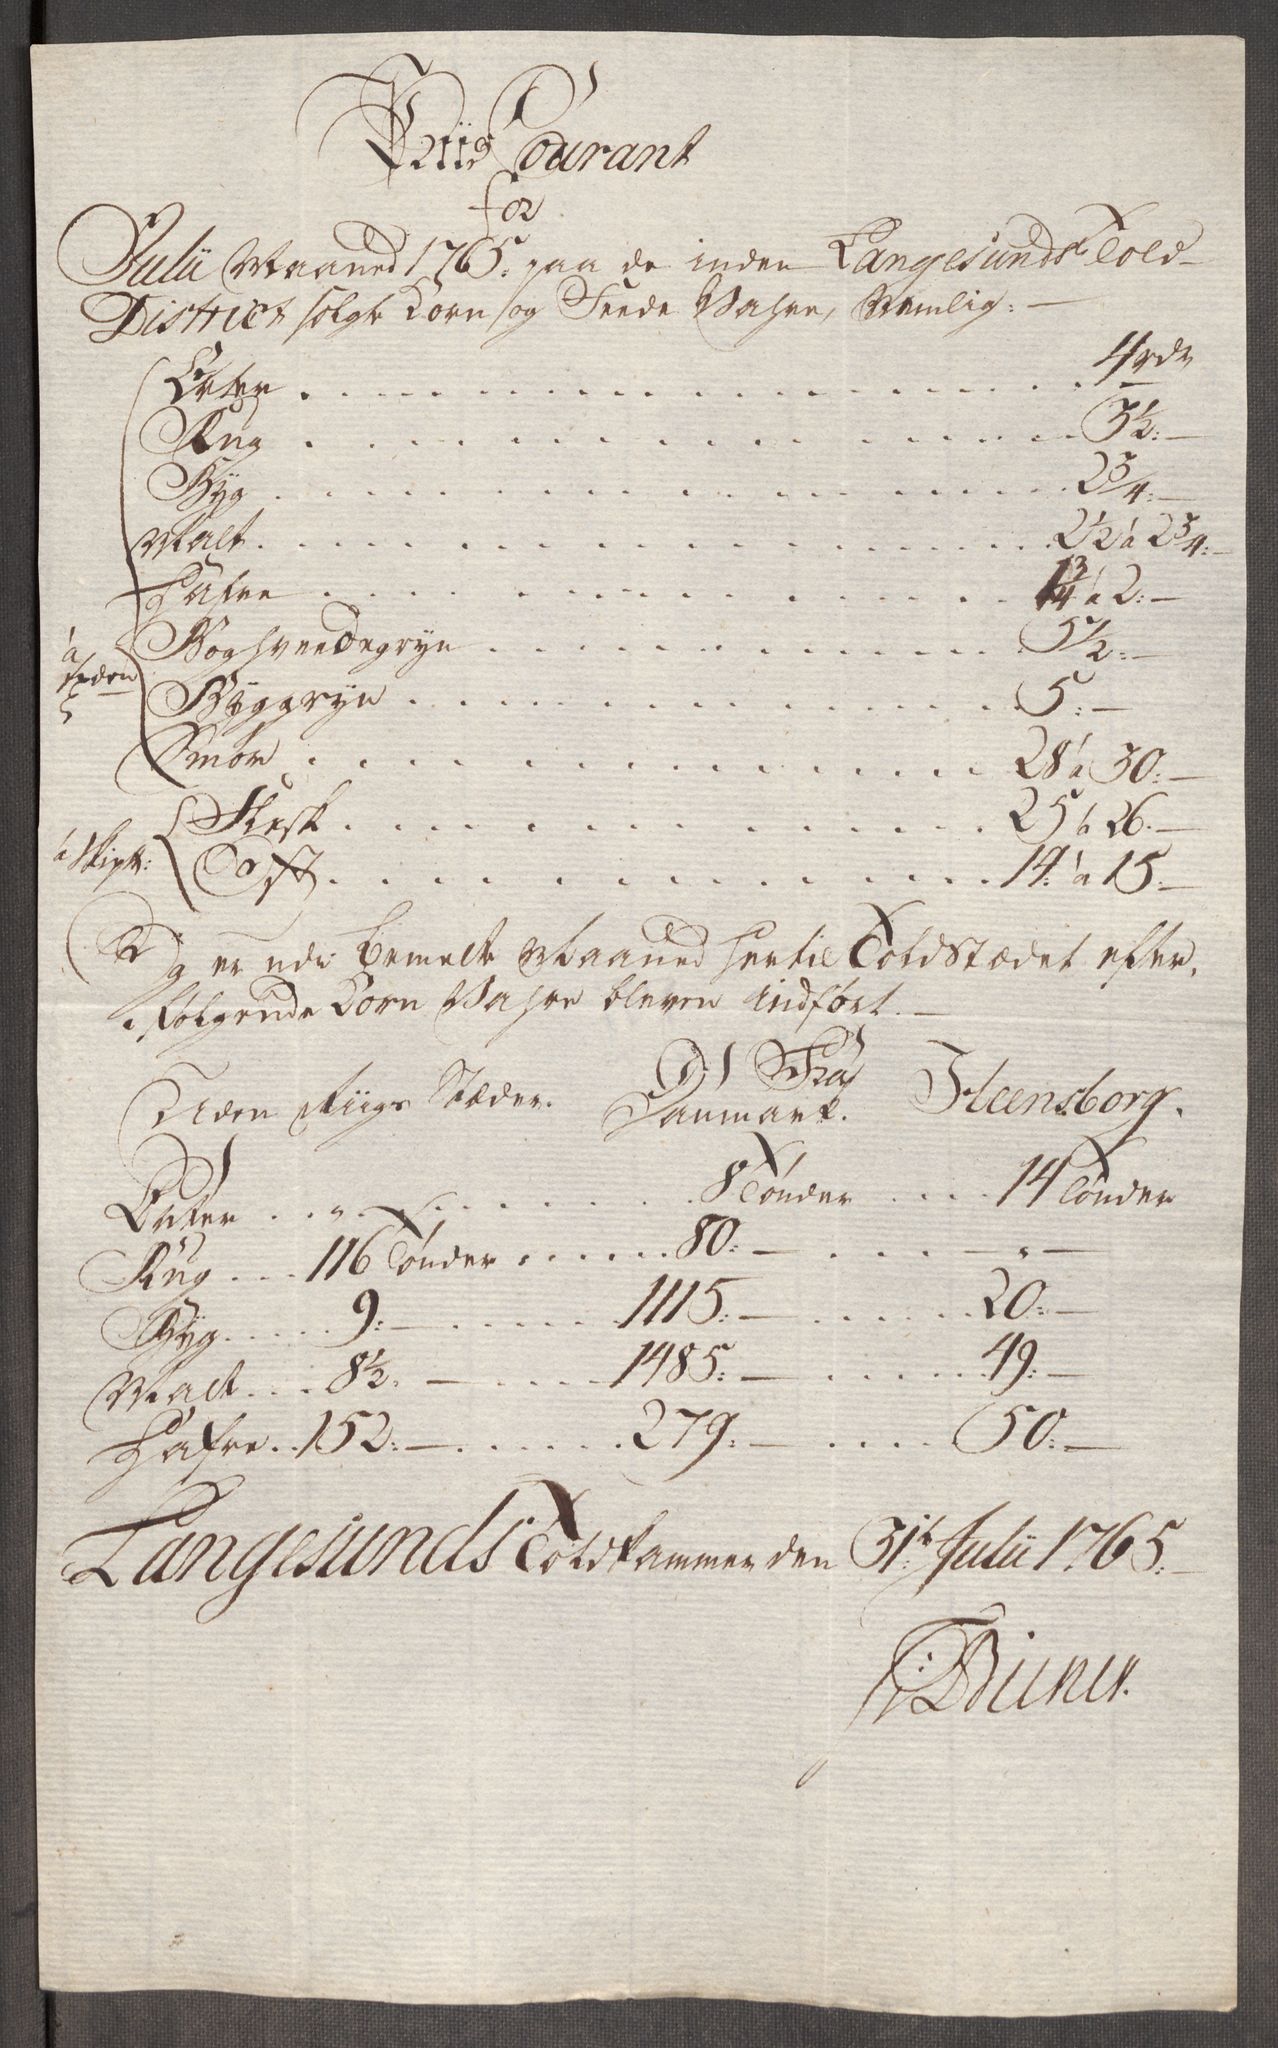 Priis Courant
for
Julii Maaned 1765. paa de inden Langesunds Told-
District solgte Korn og Feede Vahre, Nemlig:
Erter . . . 4 rdr
Rug . . . 3½:
Byg . . . 2¾:
Malt . . . 2½ à 2¾:
Hafre . . . 1¾ à 2:
Boghveedegryn . . . 5½:
Byggryn . . . 5:
à Tønden
Smør . . . 28 à 30:
Flesk . . . 25 à 26.
à Skip℔:
Ost . . . 14: à 15:
Og er udi bemelte Maaned hertil Toldstædet efter-
følgende Korn Vahre bleven indført.
Uden Riigs Stæder. Fra Danmark. Fleensborg.
Erter . . „ . . . 8 Tønder . . . 14 Tønder
Rug . . . 116 Tønder . . . 80: . . . „
Byg . . . 9: . . . 1115: . . . 20:
Malt . . . 8½. . . . 1485: . . . 49:
Hafre . . 152: . . . 279: . . . 50:
Langesunds Toldkammer den 31te Julii 1765.